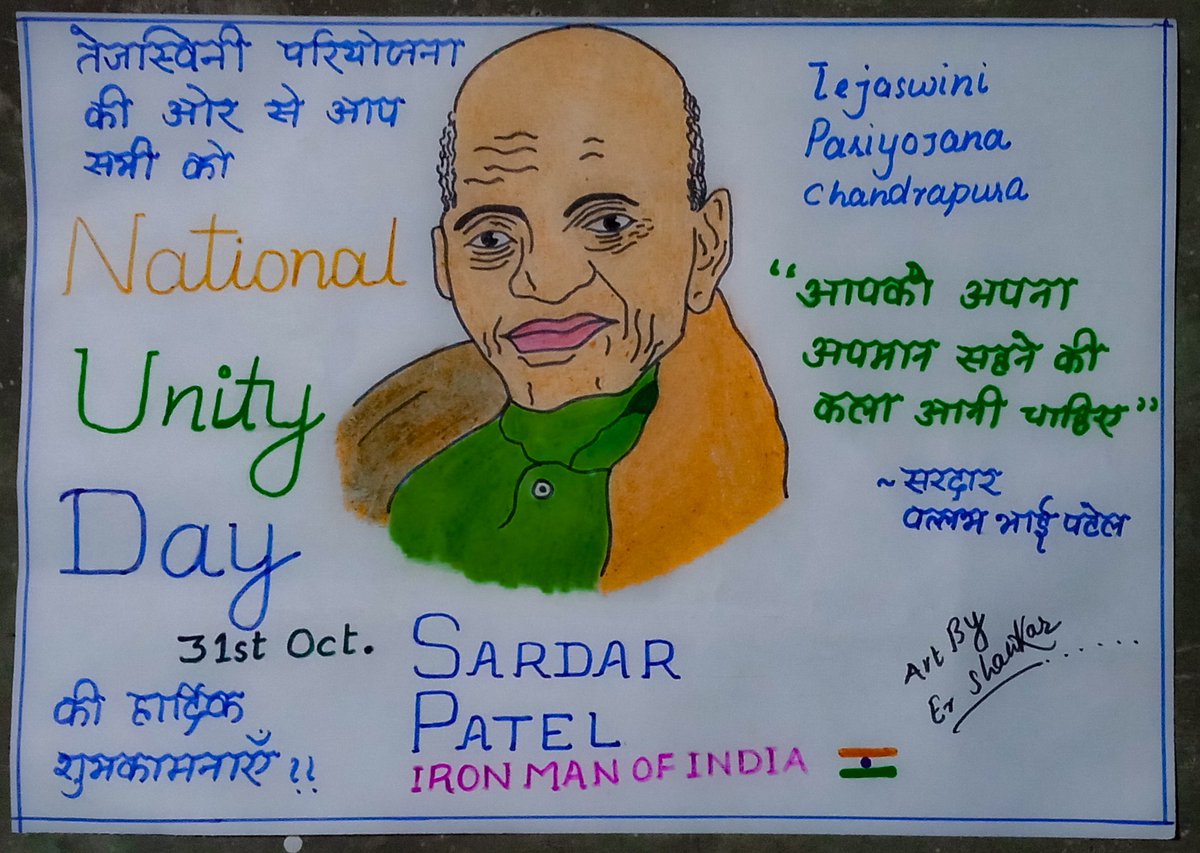 तेजस्विनी परियोजना
की ओर से आप
सभी को
National
Unity
Day
31st Oct.
की हार्दिक
शुभकामनाएँ !!
SARDAR
PATEL
IRON MAN OF INDIA
Tejaswini
Pariyojana
Chandrapura
“आपको अपना
अपमान सहने की
कला आनी चाहिए”
~सरदार
वल्लभ भाई पटेल
Art By
Er Shankar......